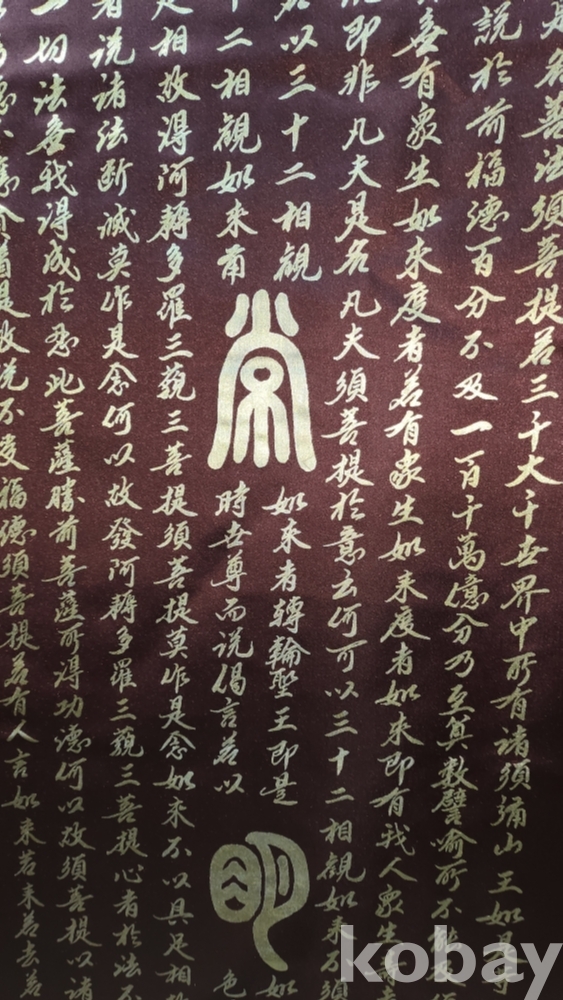 是名善法須菩提若三千大千世界中所有諸須彌山王如是等
說於前福德百分不及一百千萬億分乃至算數譬喻所不能及
有眾生如來度者若有眾生如來度者如來即有我人眾生壽者
即非凡夫是名凡夫須菩提於意云何可以三十二相觀如來不須
以三十二相觀
如來者轉輪聖王即是
如
十二相觀如來爾
常
時世尊而說偈言若以
明
色
是相故得阿耨多羅三藐三菩提須菩提莫作是念如來不以具足相故
者說諸法斷滅莫作是念何以故發阿耨多羅三藐三菩提心者於法不
一切法無我得成於忍此菩薩勝前菩薩所得功德何以故須菩提以諸
是故說不受福德須菩提若有人言如來若來若去若
kobay